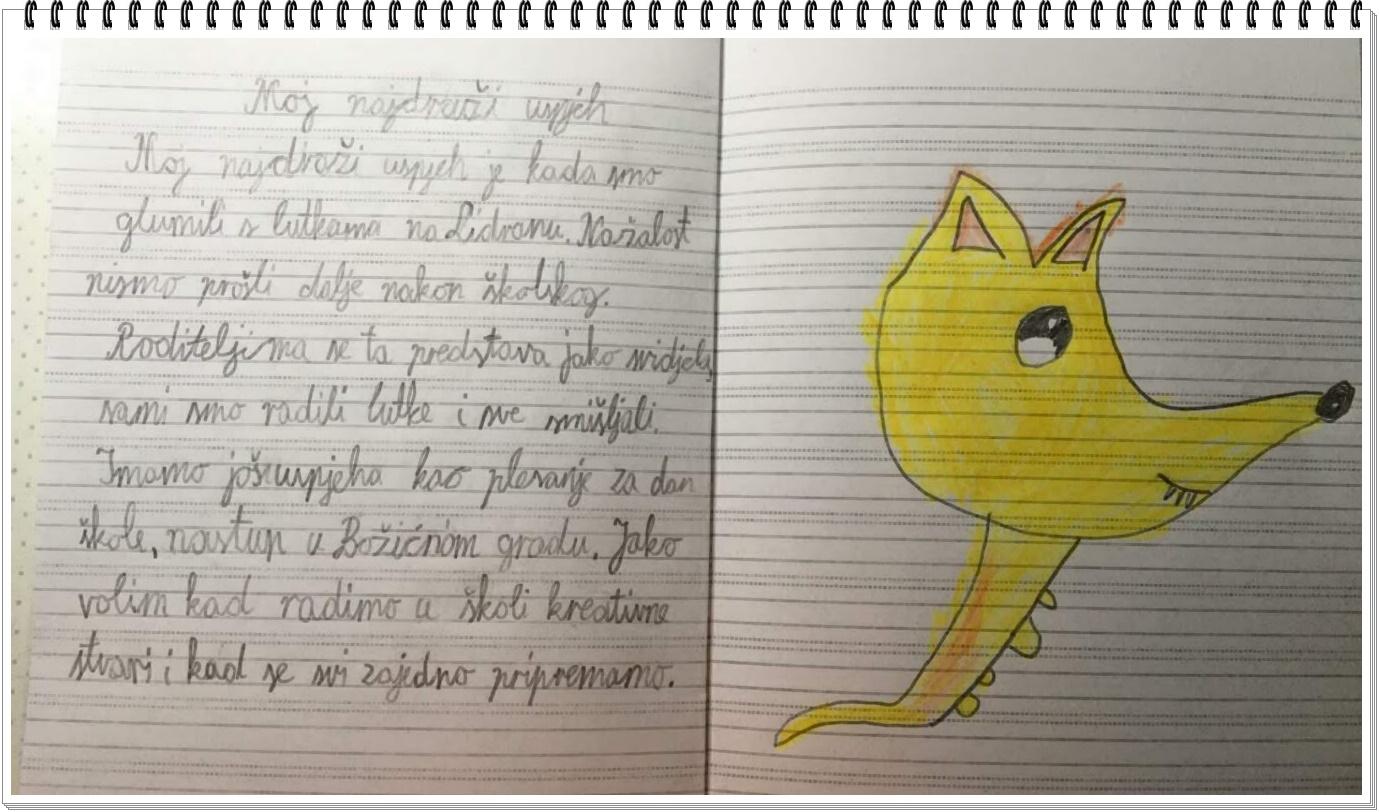 Moj najdraži uspjeh
Moj najdraži uspjeh je kada smo
glumili s lutkama na Lidranu. Nažalost
nismo prošli dalje nakon školskog.
Roditeljima se ta predstava jako svidjela,
sami smo radili lutke i sve smišljali.
Imamo još uspjeha kao plesanje za dan
škole, nastup u Božićnom gradu. Jako
volim kad radimo u školi kreativne
stvari i kad se svi zajedno pripremamo.